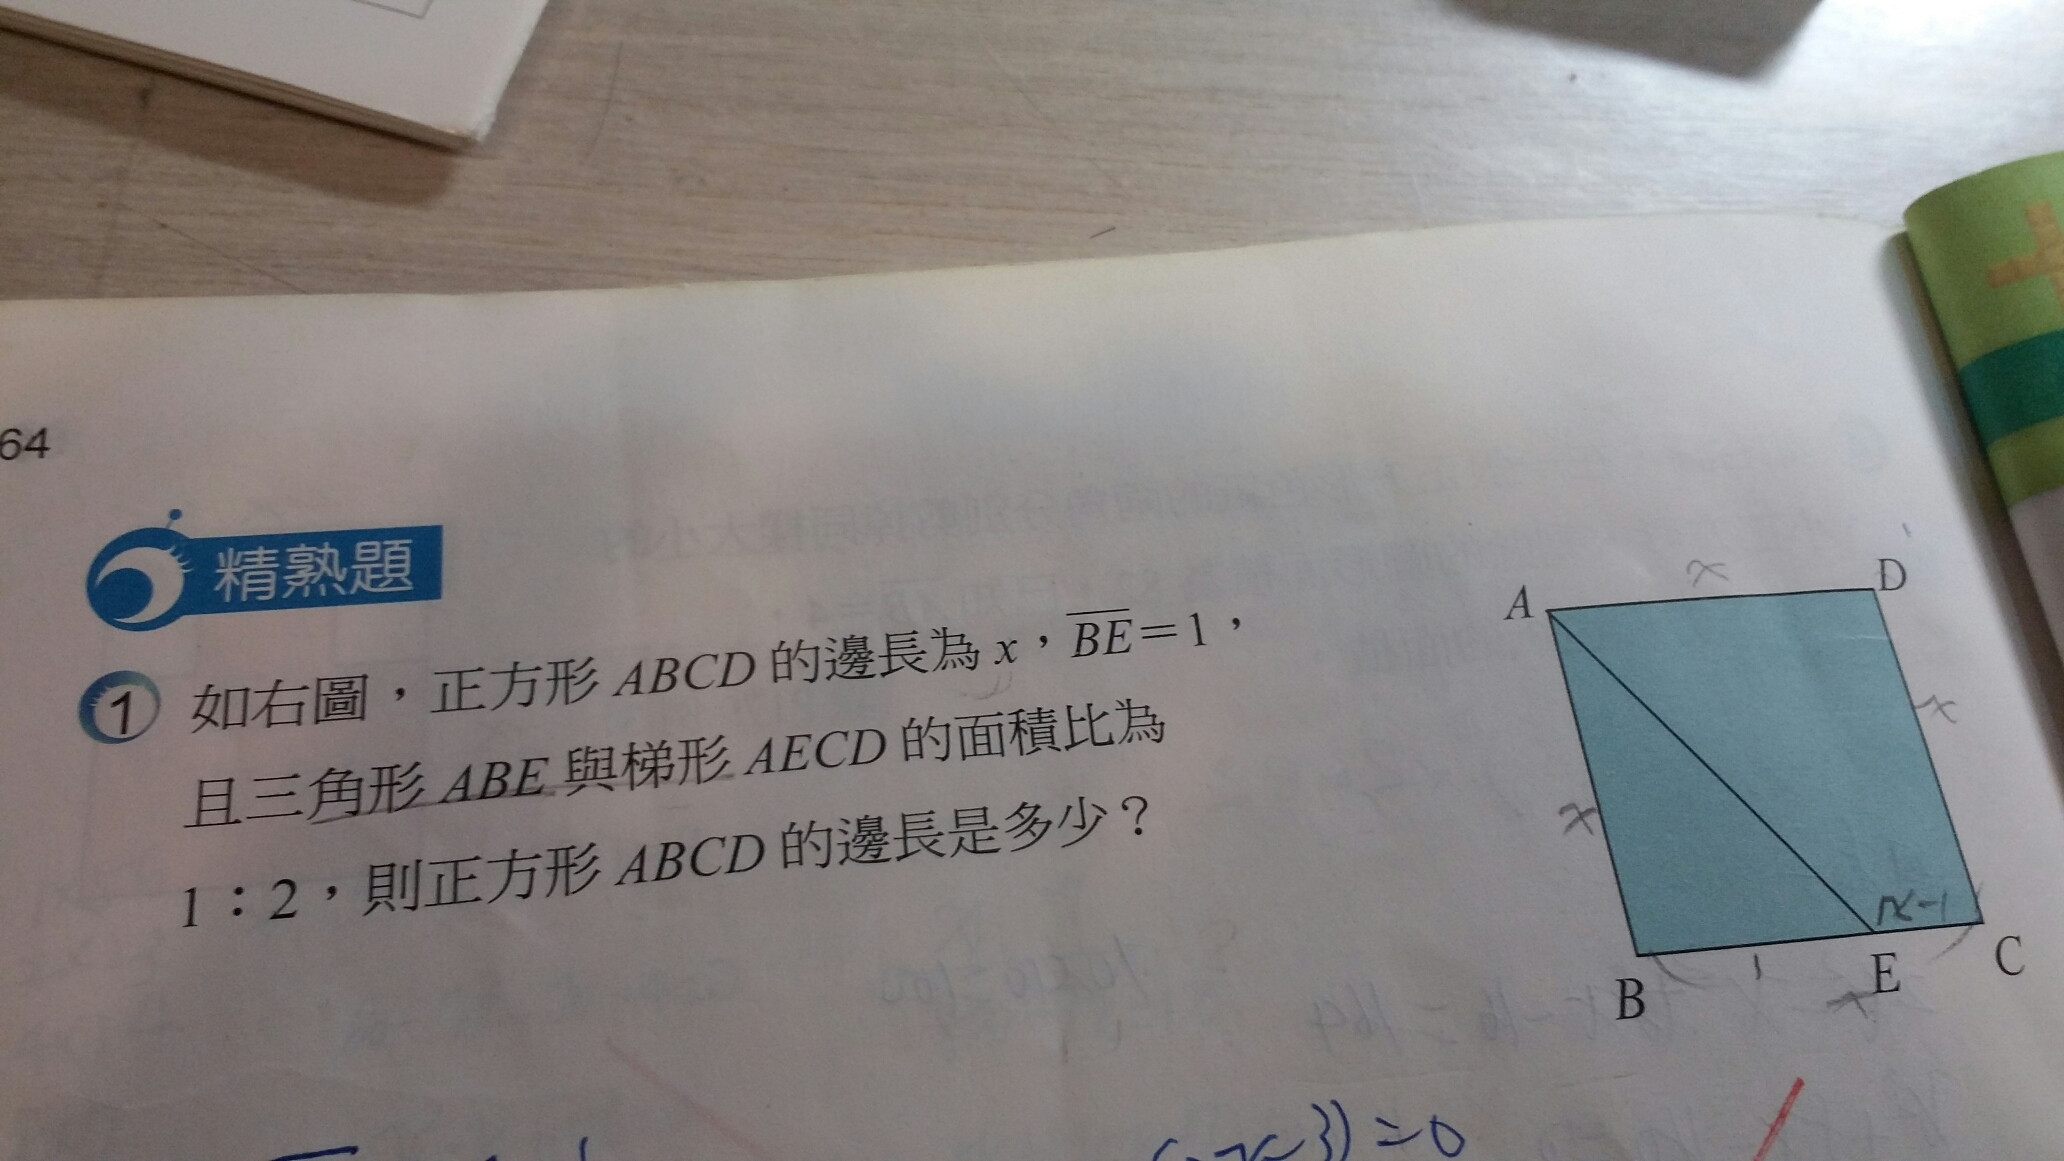 64
精熟題
1 如右圖，正方形 ABCD 的邊長為 x，BE=1，
且三角形 ABE 與梯形 AECD 的面積比為
1：2，則正方形 ABCD 的邊長是多少？
A
x
D
x
x
x-1
B
1
E
x
C